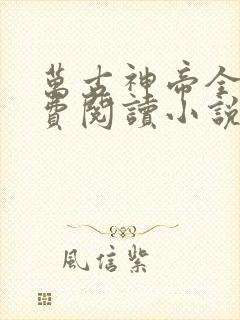 萬古神帝全
費閱讀小說
風信紫